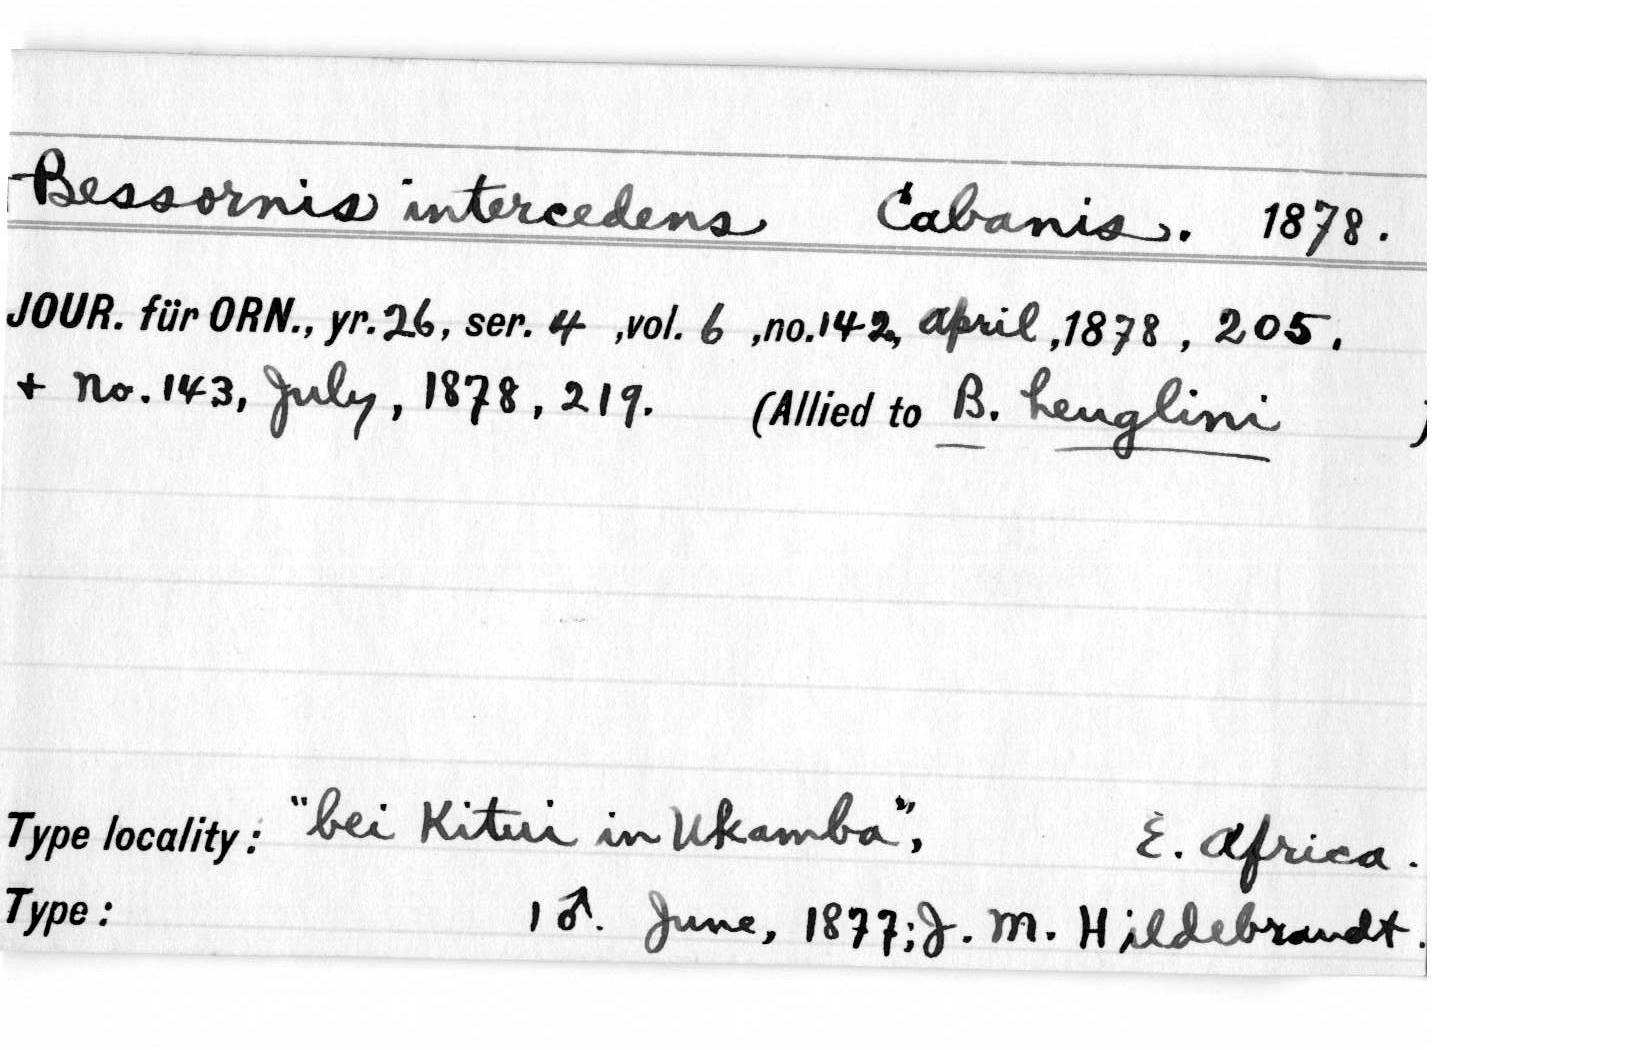 Bessornis intercedens Cabanis. 1878.
JOUR. für ORN., yr. 26, ser. 4 ,vol. 6 ,no. 142, April ,1878 , 205.
+ No. 143, July, 1878, 219. (Allied to B. heuglini )
Type locality: "bei Kitui in Ukamba", E. Africa.
Type: 1 ♂. June, 1877; J. M. Hildebrandt.